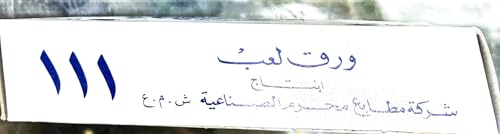 ورق لعب
١١١
إنتاج
شركة مطابع محرم الصناعية ش.م.ع